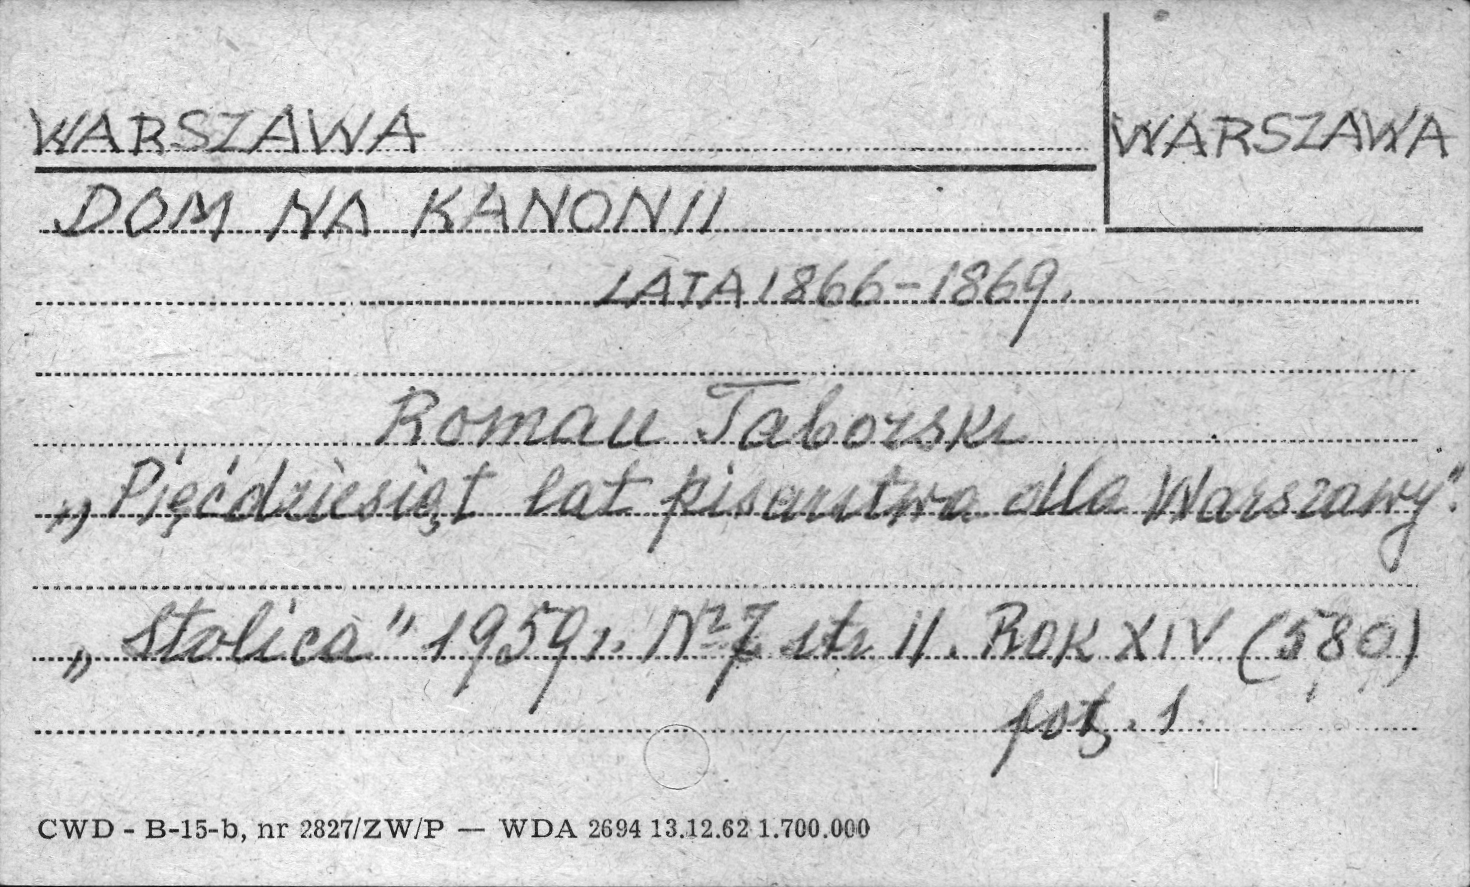 WARSZAWA
WARSZAWA
DOM NA KANONII
LATA 1866-1869.
Roman Taborski
„Pięćdziesiąt lat pisarstwa dla Warszawy".
„Stolica" 1959 r. Nº 7 str 11. ROK XIV (580)
fot. 1
CWD - B-15-b, nr 2827/ZW/P — WDA 2694 13.12.62 1.700.000